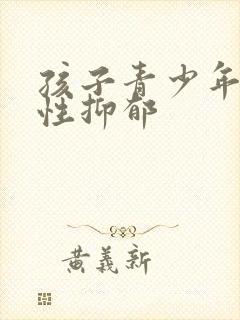 孩子青少年
性抑郁
黄义新